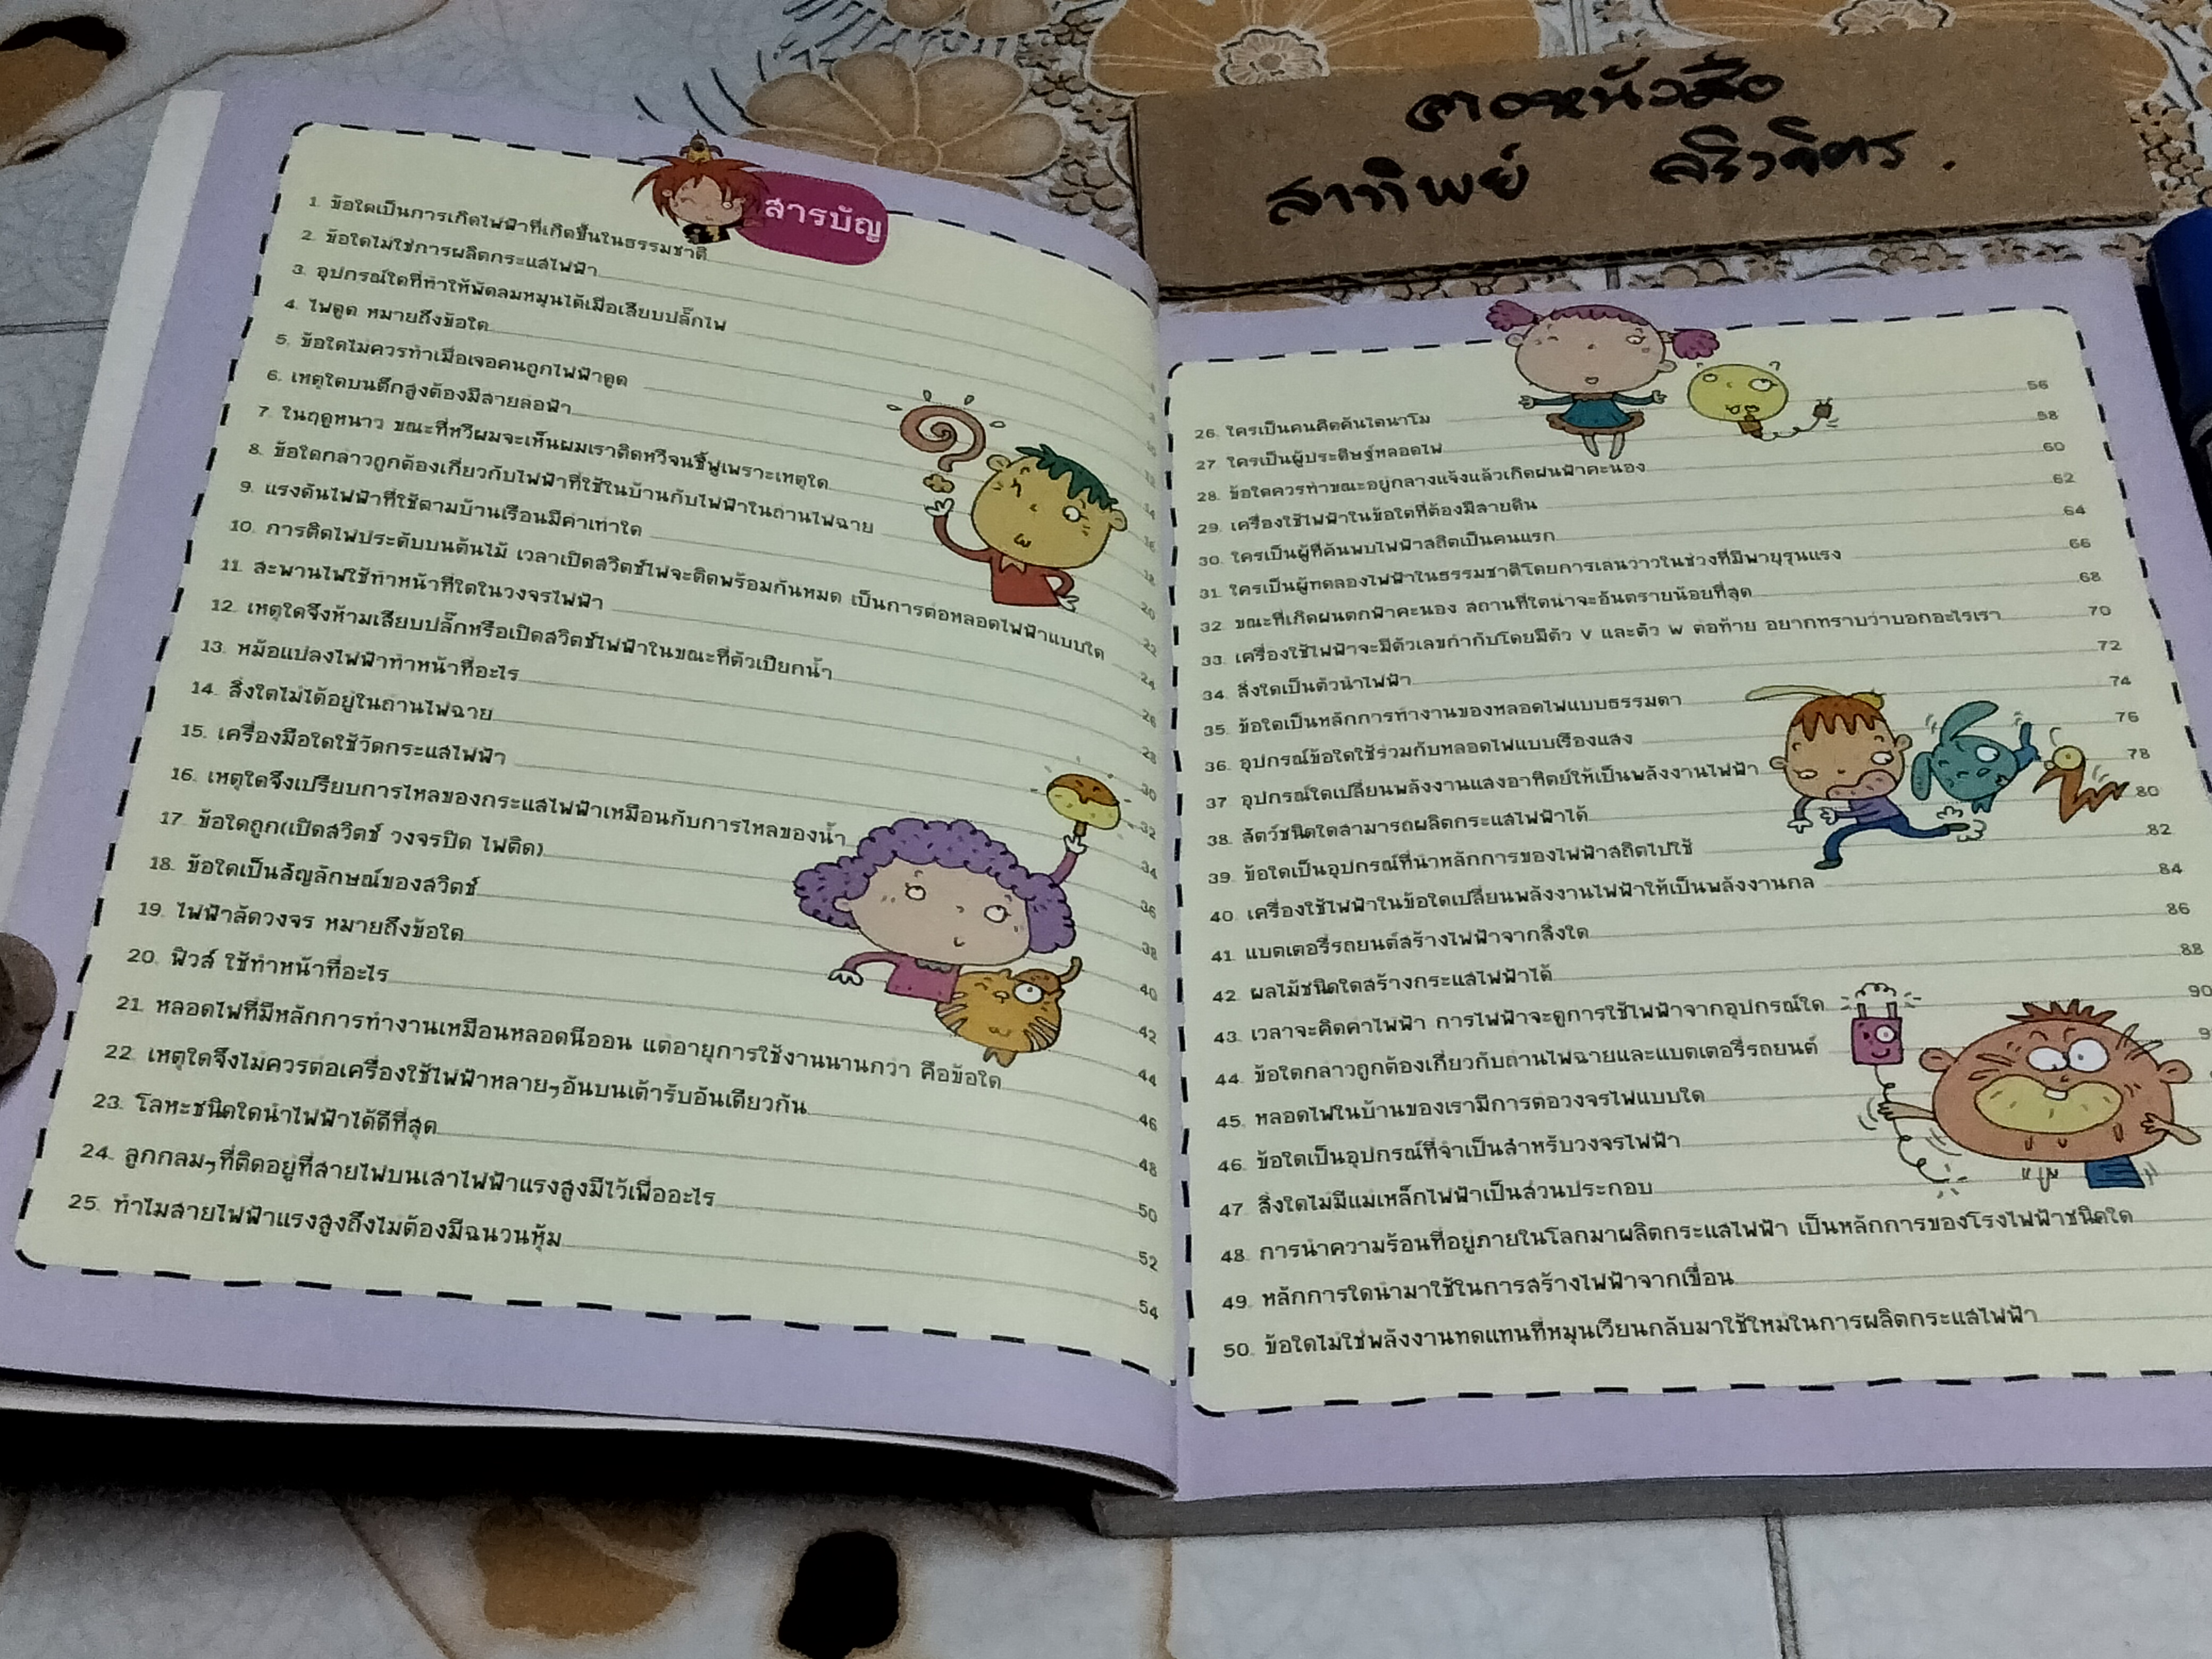 สารบัญ
1. ข้อใดเป็นการเกิดไฟฟ้าที่เกิดขึ้นในธรรมชาติ
2. ข้อใดไม่ใช่การผลิตกระแสไฟฟ้า
3. อุปกรณ์ใดที่ทำให้พัดลมหมุนได้เมื่อเสียบปลั๊กไฟ
4. ไฟดูด หมายถึงข้อใด
5. ข้อใดไม่ควรทำเมื่อเจอคนถูกไฟฟ้าดูด
6. เหตุใดบนตึกสูงต้องมีสายล่อฟ้า
7. ในฤดูหนาว ขณะที่หวีผมจะเห็นผมเราติดหวีจนชี้ฟูเพราะเหตุใด
8. ข้อใดกล่าวถูกต้องเกี่ยวกับไฟฟ้าที่ใช้ในบ้านกับไฟฟ้าในถ่านไฟฉาย
9. แรงดันไฟฟ้าที่ใช้ตามบ้านเรือนมีค่าเท่าใด
10. การติดไฟประดับบนต้นไม้ เวลาเปิดสวิตช์ไฟจะติดพร้อมกันหมด เป็นการต่อหลอดไฟฟ้าแบบใด 24
11. สะพานไฟใช้ทำหน้าที่ใดในวงจรไฟฟ้า 26
12. เหตุใดจึงห้ามเสียบปลั๊กหรือเปิดสวิตช์ไฟฟ้าในขณะที่ตัวเปียกน้ำ 28
13. หม้อแปลงไฟฟ้าทำหน้าที่อะไร 30
14. สิ่งใดไม่ได้อยู่ในถ่านไฟฉาย 32
15. เครื่องมือใดใช้วัดกระแสไฟฟ้า 34
16. เหตุใดจึงเปรียบการไหลของกระแสไฟฟ้าเหมือนกับการไหลของน้ำ 36
17. ข้อใดถูก(เปิดสวิตช์ วงจรปิด ไฟติด) 38
18. ข้อใดเป็นสัญลักษณ์ของสวิตช์ 40
19. ไฟฟ้าลัดวงจร หมายถึงข้อใด 42
20. ฟิวส์ ใช้ทำหน้าที่อะไร 44
21. หลอดไฟที่มีหลักการทำงานเหมือนหลอดนีออน แต่อายุการใช้งานนานกว่า คือข้อใด 46
22. เหตุใดจึงไม่ควรต่อเครื่องใช้ไฟฟ้าหลายๆอันบนเต้ารับอันเดียวกัน 48
23. โลหะชนิดใดนำไฟฟ้าได้ดีที่สุด 50
24. ลูกกลมๆที่ติดอยู่ที่สายไฟบนเสาไฟฟ้าแรงสูงมีไว้เพื่ออะไร 52
25. ทำไมสายไฟฟ้าแรงสูงถึงไม่ต้องมีฉนวนหุ้ม 54
26. ใครเป็นคนคิดค้นไดนาโม 56
27. ใครเป็นผู้ประดิษฐ์หลอดไฟ 58
28. ข้อใดควรทำขณะอยู่กลางแจ้งแล้วเกิดฝนฟ้าคะนอง 60
29. เครื่องใช้ไฟฟ้าในข้อใดที่ต้องมีสายดิน 62
30. ใครเป็นผู้ที่ค้นพบไฟฟ้าสถิตเป็นคนแรก 64
31. ใครเป็นผู้ทดลองไฟฟ้าในธรรมชาติโดยการเล่นว่าวในช่วงที่มีพายุรุนแรง 66
32. ขณะที่เกิดฝนตกฟ้าคะนอง สถานที่ใดน่าจะอันตรายน้อยที่สุด 68
33. เครื่องใช้ไฟฟ้าจะมีตัวเลขกำกับโดยมีตัว V และตัว W ต่อท้าย อยากทราบว่าบอกอะไรเรา 70
34. สิ่งใดเป็นตัวนำไฟฟ้า 72
35. ข้อใดเป็นหลักการทำงานของหลอดไฟแบบธรรมดา 74
36. อุปกรณ์ข้อใดใช้ร่วมกับหลอดไฟแบบเรืองแสง 76
37. อุปกรณ์ใดเปลี่ยนพลังงานแสงอาทิตย์ให้เป็นพลังงานไฟฟ้า 78
38. สัตว์ชนิดใดสามารถผลิตกระแสไฟฟ้าได้ 80
39. ข้อใดเป็นอุปกรณ์ที่นำหลักการของไฟฟ้าสถิตไปใช้ 82
40. เครื่องใช้ไฟฟ้าในข้อใดเปลี่ยนพลังงานไฟฟ้าให้เป็นพลังงานกล 84
41. แบตเตอรี่รถยนต์สร้างไฟฟ้าจากสิ่งใด 86
42. ผลไม้ชนิดใดสร้างกระแสไฟฟ้าได้ 88
43. เวลาจะคิดค่าไฟฟ้า การไฟฟ้าจะดูการใช้ไฟฟ้าจากอุปกรณ์ใด 90
44. ข้อใดกล่าวถูกต้องเกี่ยวกับถ่านไฟฉายและแบตเตอรี่รถยนต์
45. หลอดไฟในบ้านของเรามีการต่อวงจรไฟแบบใด
46. ข้อใดเป็นอุปกรณ์ที่จำเป็นสำหรับวงจรไฟฟ้า
47. สิ่งใดไม่มีแม่เหล็กไฟฟ้าเป็นส่วนประกอบ
48. การนำความร้อนที่อยู่ภายในโลกมาผลิตกระแสไฟฟ้า เป็นหลักการของโรงไฟฟ้าชนิดใด
49. หลักการใดนำมาใช้ในการสร้างไฟฟ้าจากเขื่อน
50. ข้อใดไม่ใช่พลังงานทดแทนที่หมุนเวียนกลับมาใช้ใหม่ในการผลิตกระแสไฟฟ้า
สาทิพย์